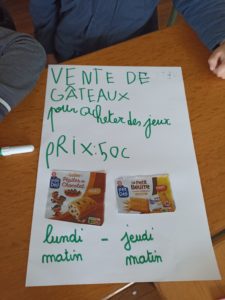 VENTE DE
GÂTEAUX
pour acheter des jeux
PRIX: 50C
Pépites de
Chocolat
P'tit Déli
Le Petit
Beurre
P'tit Déli
lundi - jeudi
matin matin